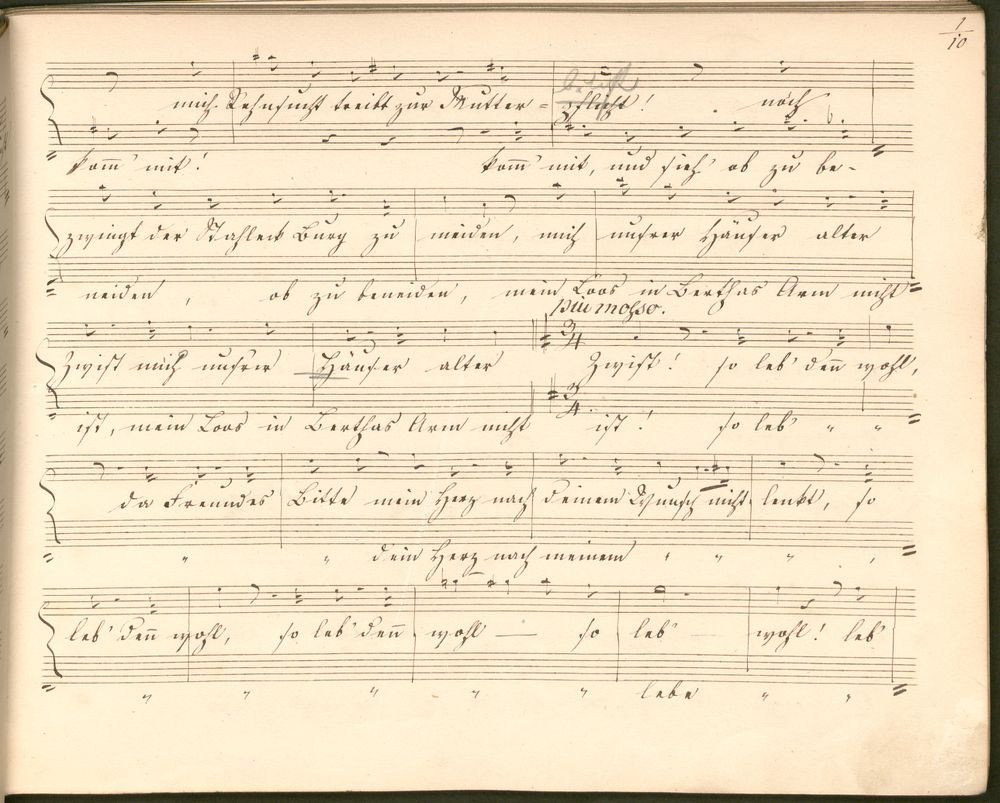 1/10
mich Sehnsucht treibt zur Mutter = pflicht! noch
kom̄' mit! kom̄' mit, und sieh' ob zu be-
zwingt der Stahleck Burg zu meiden, mich unsrer Häuser alter
neiden, ob zu beneiden, mein Loos in Berthas Arm nicht
piu mosso.
Zwist mich unsrer Häuser alter Zwist! so leb' den̄ wohl,
ist, mein Loos in Berthas Arm nicht ist! so leb' " "
da Freundes Bitte mein Herz nach deinem Wunsch nicht lenkt, so
" " dein Herz nach meinem " " " ,
leb' den̄ wohl, so leb' den̄ wohl — so leb' wohl! leb'
" " " " " lebe " "